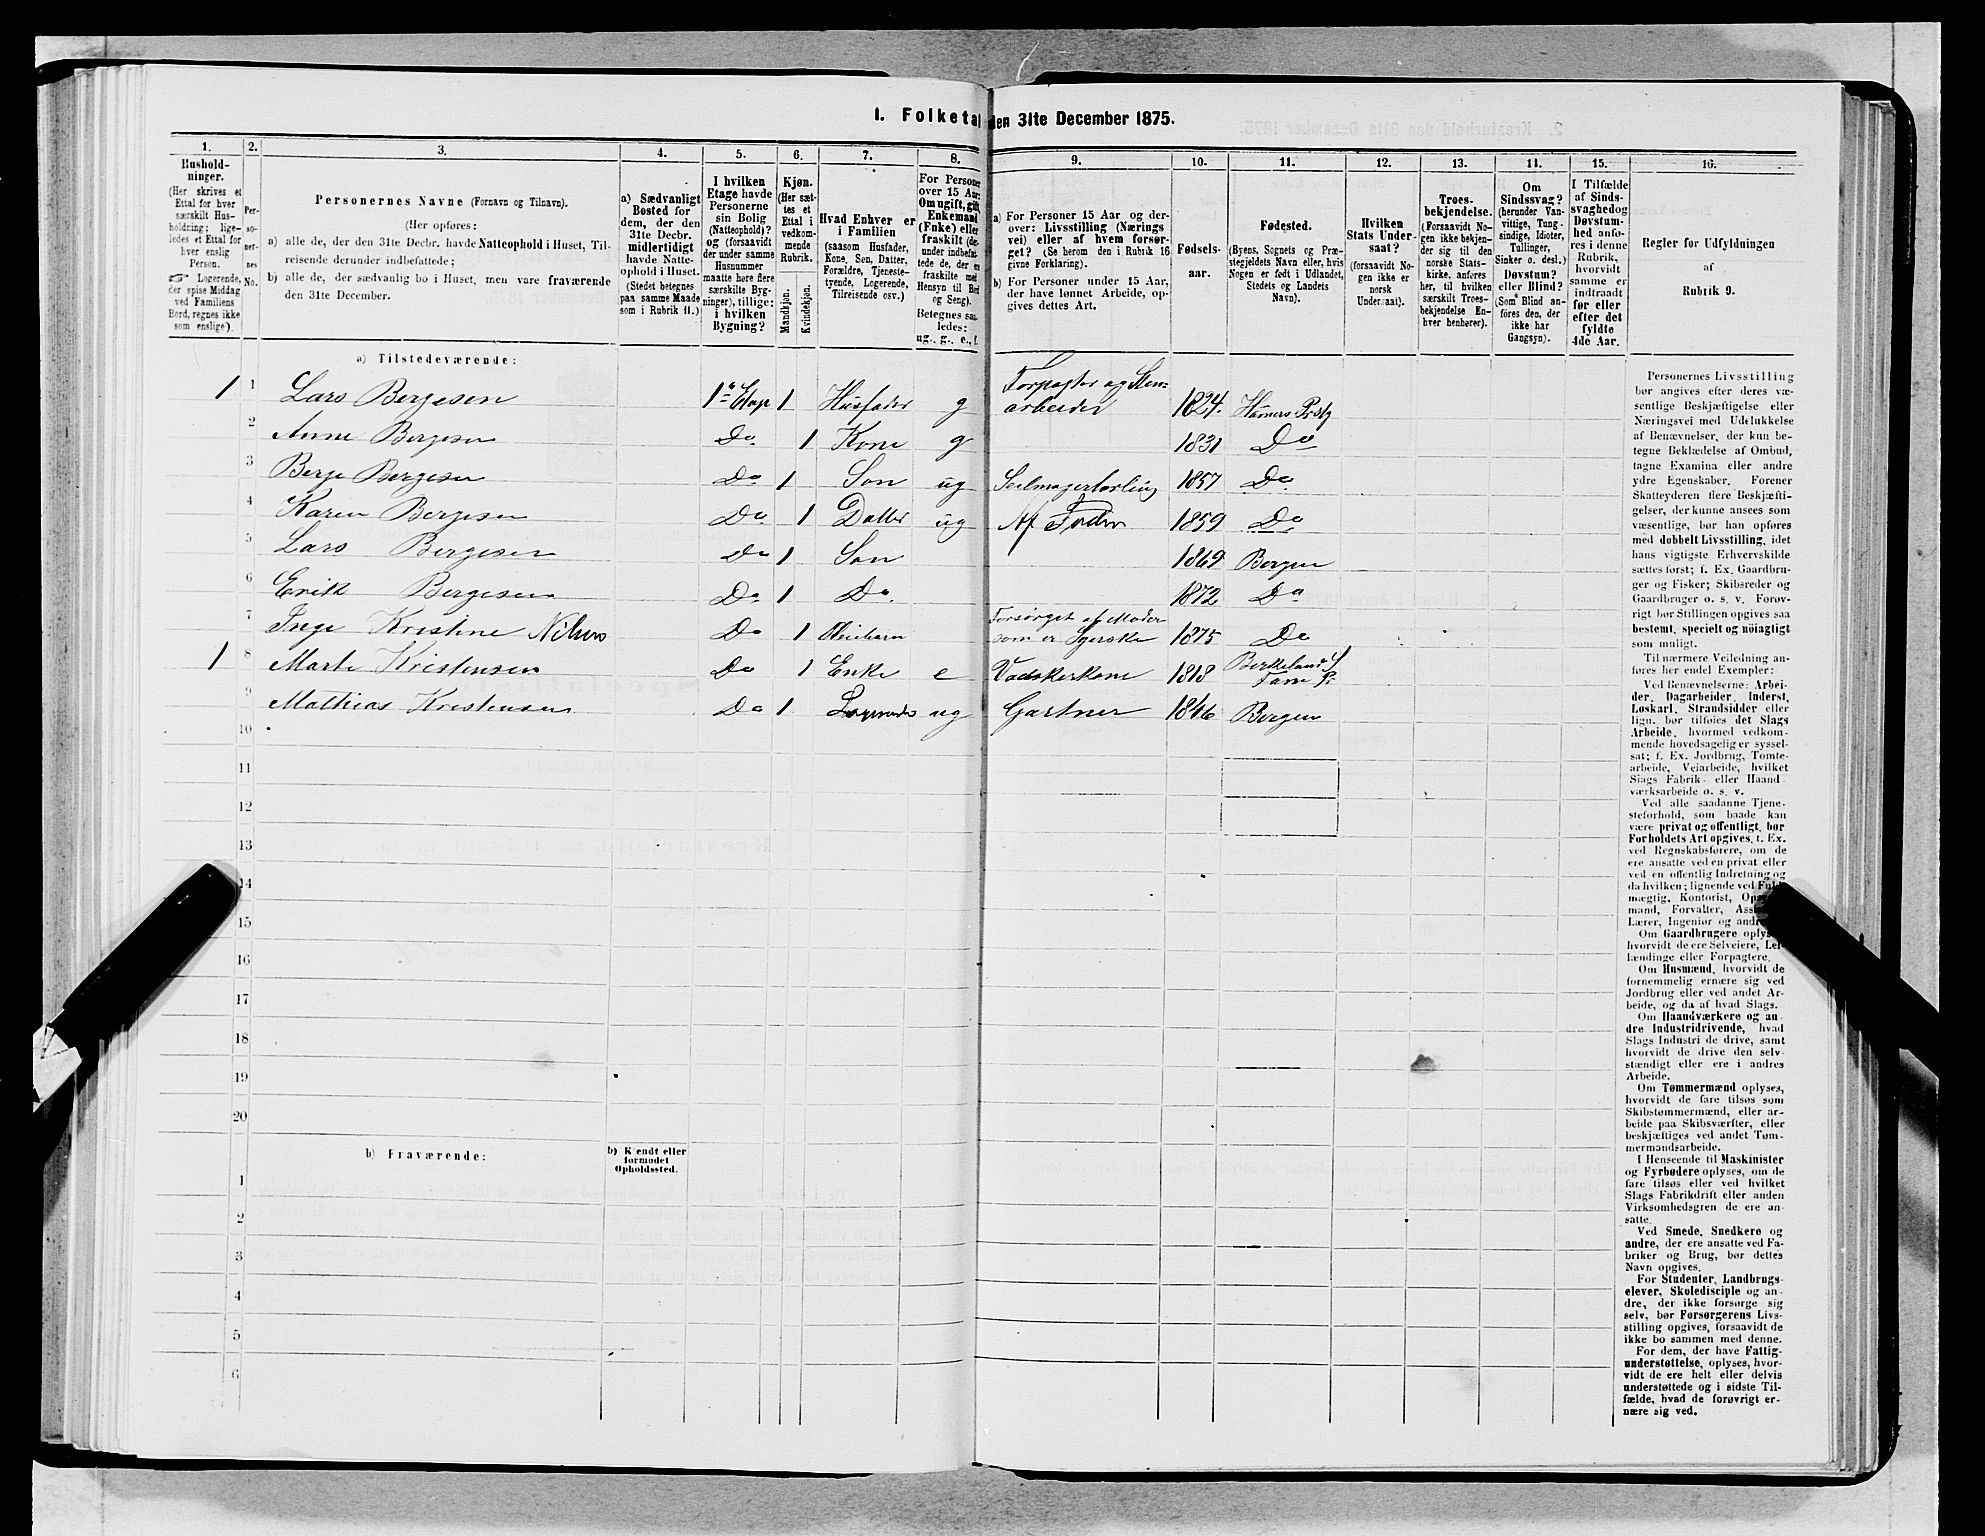 1. Folketal den 31te December 1875.
1.
Hushold-
ninger.
(Her skrives et
Ettal for hver
særskilt Hus-
holdning; lige-
ledes et Ettal for
hver enslig
Person.
☞ Logerende,
der spise Middag
ved Familiens
Bord, regnes ikke
som enslige).
2.
Per-
so-
ner-
nes
No.
3.
Personernes Navne (Fornavn og Tilnavn).
(Her opføres:
a) alle de, der den 31te Decbr. havde Natteophold i Huset, Til-
reisende derunder indbefattede;
b) alle de, der sædvanlig bo i Huset, men vare fraværende
den 31te December.
4.
a) Sædvanligt
Bosted for
dem, der den
31te Decbr.
midlertidigt
havde Natte-
ophold i Huset.
(Stedet betegnes
paa samme Maade
som i Rubrik 11.)
5.
I hvilken
Etage havde
Personerne
sin Bolig
(Natteophold)?
og (forsaavidt
der under samme
Husnummer
maatte høre flere
særskilte Byg-
ninger), tillige:
i hvilken
Bygning?
6.
Kjøn.
(Her sæt-
tes et
Ettal i
vedkom-
mende
Rubrik.
Mandkjøn.
Kvindekjøn.
7.
Hvad Enhver er
i Familien
(saasom Husfader,
Kone, Søn, Datter,
Forældre, Tjeneste-
tyende, Logerende,
Tilreisende osv.)
8.
For Personer
over 15 Aar:
Om ugift, gift,
Enkemand
(Enke) eller
fraskilt (de-
under indbefat-
tede de, der er
fraskilte med
Hensyn til Bord
og Seng).
Betegnes saa-
ledes:
ug., g., e., f.
9.
a) For Personer 15 Aar og der-
over: Livsstilling (Nærings
vei) eller af hvem forsør-
get? (Se herom den i Rubrik 16
givne Forklaring).
b) For Personer under 15 Aar,
der have lønnet Arbeide, op-
gives dettes Art.
10.
Fødsels-
aar.
11.
Fødested.
(Byens, Sognets og Præ-
stegjeldets Navn eller, hvis
Nogen er født i Udlandet,
Stedets og Landets
Navn).
12.
Hvilken
Stats Under-
saat?
(forsaavidt No-
gen ikke er
norsk
Undersaat).
13.
Troes-
bekjendelse.
(Forsaavidt No-
gen ikke bekjen-
der sig til den
norske Stats-
kirke, anføres
her, til hvilken
særskilt Troes-
bekjendelse En-
hver henhører).
14.
Om
Sindssvag?
(herunder Van-
vittige, Tung-
sindige, Idioter,
Tullinger,
Sinker o. desl.)
Døvstum?
eller Blind?
(Som Blind an-
føres den, der
ikke har
Gangsyn).
15.
I Tilfælde
af Sinds-
svaghed og
Døvstum-
hed anfø-
res i denne
Rubrik,
hvorvidt
samme er
indtraadt
før eller
efter det
fyldte
4de Aar.
16.
Regler for Udfyldningen
af
Rubrik 9.
a) Tilstedeværende:
1 1 Lars Bergesen 1ste Etage 1 Husfader g Forpagter og Sten-
arbeider 1824. Hammers Prstg
2 Anne Bergesen Do 1 Kone g 1831 Do
3 Berge Bergesen Do 1 Søn ug Seilmagerlærling 1857 Do
4 Karen Bergesen Do 1 Datter ug Af Fader 1859 Do
5 Lars Bergesen Do 1 Søn 1869 Bergen
6 Erik Bergesen Do 1 Do 1872 Do
7 Inge Kristine Nilsen Do 1 Pleiebarn Forsørget af Moder
som er Syerske 1875 Do
1 8 Marte Kristensen Do 1 Enke e Vadskerkone 1818 Birkeland S
Fane Pr
9 Mathias Kristensen Do 1 Logerende ug Gartner 1846 Bergen
10
11
12
13
14
15
16
17
18
19
20
b) Fraværende:
b) Kjendt eller
formodet
Opholdssted.
1
2
3
4
5
6
Personernes Livsstilling
bør angives efter deres væ-
sentlige Beskjæftigelse eller
Næringsvei med Udelukkelse
af Benævnelser, der kun be-
tegne Beklædelse af Ombud,
tagne Examina eller andre
ydre Egenskaber. Forener
Skatteyderen flere Beskjæfti-
gelser, der kunne ansees som
væsentlige, bør han opføres
med dobbelt Livsstilling, idet
hans vigtigste Erhvervskilde
sættes først; f. Ex. Gaardbru-
ger og Fisker; Skibsreder og
Gaardbruger o. s. v. Forøv-
rigt bør Stillingen opgives saa
bestemt, specielt og nöiagtigt
som muligt.
Til nærmere Veiledning an-
føres her endel Exempler:
Ved Benævnelserne: Arbei-
der, Dagarbeider, Inderst,
Løskarl, Strandsidder eller
lign. bør tilføies det Slags
Arbeide, hvormed vedkom-
mende hovedsagelig er syssel-
sat; f. Ex. Jordbrug, Tomte-
arbeide, Veiarbeide, hvilket
Slags Fabrik- eller Haand-
værksarbeide o. s. v.
Ved alle saadanne Tjene-
steforhold, som baade kan
være privat og offentligt, bør
Forholdets Art opgives, f. Ex.
ved Regnskabsførere, om de
ere ansatte ved en privat eller
ved en offentlig Indretning og
da hvilken; lignende ved Fuld-
mægtig, Kontorist, Opsyns-
mand, Forvalter, Assistent,
Lærer, Ingeniør og andre.
Om Gaardbrugere oplyses,
hvorvidt de ere Selveiere, Lei-
lændinge eller Forpagtere.
Om Husmænd, hvorvidt de
fornemmelig ernære sig ved
Jordbrug eller ved andet Ar-
beide, og da af hvad Slags.
Om Haandværkere og an-
dre Industridrivende, hvad
Slags Industri de drive, samt
hvorvidt de drive den selv-
stændigt eller ere i andres
Arbeide.
Om Tømmermænd oplyses,
hvorvidt de fare tilsøs som
Skibstømmermænd, eller ar-
beide paa Skibsværfter, eller
beskjæftiges ved andet Tøm-
mermandsarbeide.
I Henseende til Maskinister
og Fyrbødere oplyses, om de
fare tilsøs eller ved hvilket
Slags Fabrikdrift eller anden
Virksomhedsgren de ere an-
satte.
Ved Smede, Snedkere og
andre, der ere ansatte ved Fa-
briker og Brug, bør dettes
Navn opgives.
For Studenter, Landbrugs-
elever, Skoledisciple og an-
dre, der ikke forsørge sig
selv, bør Forsørgerens Livs-
stilling opgives, forsaavidt de
ikke bo sammen med denne.
For dem, der have Fattig-
understøttelse, oplyses, hvor-
vidt de ere helt eller delvis
understøttede og i sidste Til-
fælde, hvad de forøvrigt er-
nære sig ved.